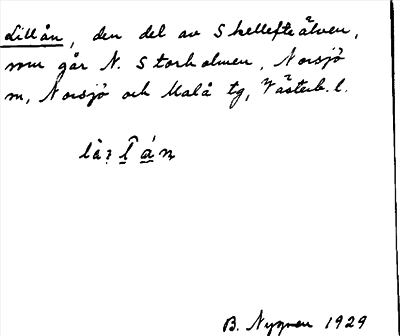 Lillån, den del av Skellefteälven,
som går N. Storholmen, Norsjö
sn, Norsjö och Malå tg, Västerb. l.
B. Nygren 1929